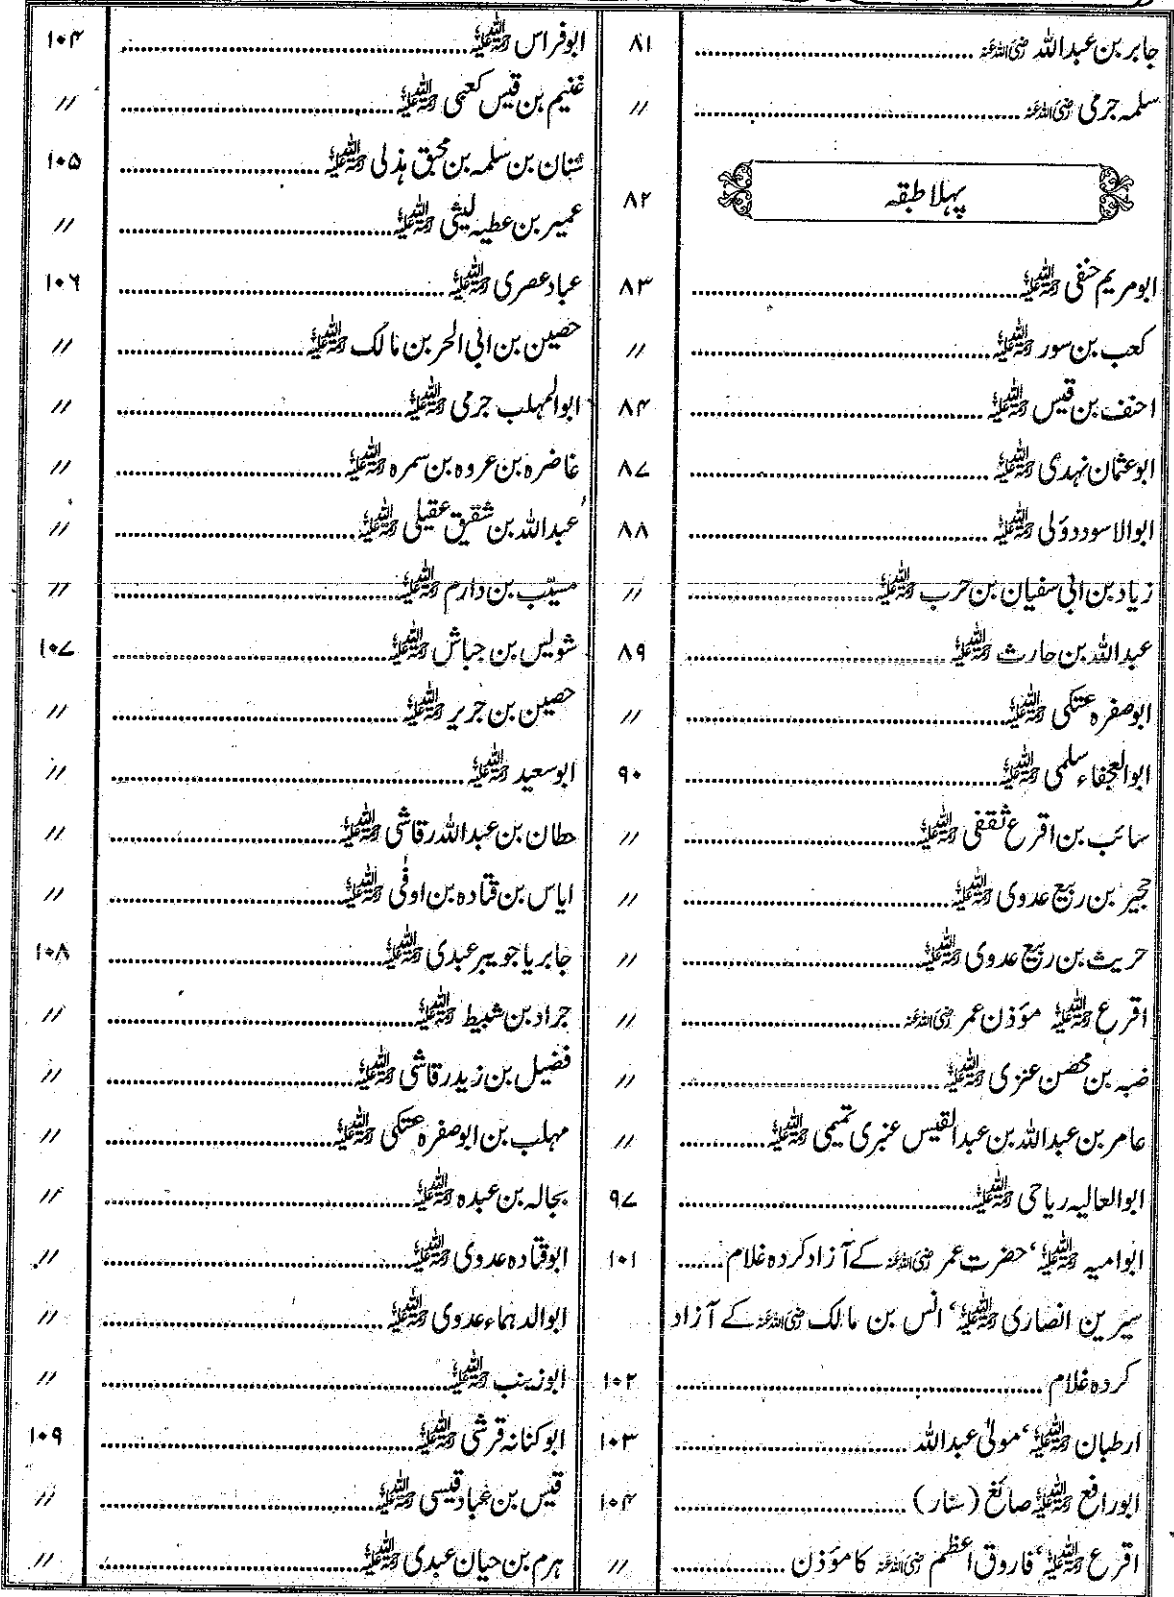 جابر بن عبداللہ رضی اللہ عنہ ........ ۸۱
سلمہ جرمی رضی اللہ عنہ ........ //
پہلا طبقہ ۸۲
ابومریم حنفی رحمۃ اللہ علیہ ........ ۸۳
کعب بن سور رحمۃ اللہ علیہ ........ //
احنف بن قیس رحمۃ اللہ علیہ ........ ۸۴
ابوعثمان نہدی رحمۃ اللہ علیہ ........ ۸۷
ابوالاسود دؤلی رحمۃ اللہ علیہ ........ ۸۸
زیاد بن ابی سفیان بن حرب رحمۃ اللہ علیہ ........ //
عبداللہ بن حارث رحمۃ اللہ علیہ ........ ۸۹
ابوصفرہ عتکی رحمۃ اللہ علیہ ........ //
ابوالعجفاء سلمی رحمۃ اللہ علیہ ........ ۹۰
سائب بن اقرع ثقفی رحمۃ اللہ علیہ ........ //
حجیر بن ربیع عدوی رحمۃ اللہ علیہ ........ //
حریث بن ربیع عدوی رحمۃ اللہ علیہ ........ //
اقرع رحمۃ اللہ علیہ مؤذن عمر رضی اللہ عنہ ........ //
ضبہ بن محصن عنزی رحمۃ اللہ علیہ ........ //
عامر بن عبداللہ بن عبدالقیس عنبری تمیمی رحمۃ اللہ علیہ ........ //
ابوالعالیہ ریاحی رحمۃ اللہ علیہ ........ ۹۷
ابوامیہ رحمۃ اللہ علیہ، حضرت عمر رضی اللہ عنہ کے آزاد کردہ غلام ........ ۱۰۱
سیرین انصاری رحمۃ اللہ علیہ، انس بن مالک رضی اللہ عنہ کے آزاد
کردہ غلام ........ ۱۰۲
ارطبان رحمۃ اللہ علیہ، مولیٰ عبداللہ ........ ۱۰۳
ابورافع رحمۃ اللہ علیہ صائغ (سنار) ........ ۱۰۴
اقرع رحمۃ اللہ علیہ، فاروق اعظم رضی اللہ عنہ کا مؤذن ........ //
ابوفراس رحمۃ اللہ علیہ ........ ۱۰۴
غنیم بن قیس کعبی رحمۃ اللہ علیہ ........ //
سنان بن سلمہ بن محبق ہذلی رحمۃ اللہ علیہ ........ ۱۰۵
عمیر بن عطیہ لیثی رحمۃ اللہ علیہ ........ //
عباد عصری رحمۃ اللہ علیہ ........ ۱۰۶
حصین بن ابی الحر بن مالک رحمۃ اللہ علیہ ........ //
ابوالمہلب جرمی رحمۃ اللہ علیہ ........ //
غاضرہ بن عروہ بن سمرہ رحمۃ اللہ علیہ ........ //
عبداللہ بن شقیق عقیلی رحمۃ اللہ علیہ ........ //
مسیّب بن دارم رحمۃ اللہ علیہ ........ //
شویس بن جباش رحمۃ اللہ علیہ ........ ۱۰۷
حصین بن جریر رحمۃ اللہ علیہ ........ //
ابوسعید رحمۃ اللہ علیہ ........ //
حطان بن عبداللہ رقاشی رحمۃ اللہ علیہ ........ //
ایاس بن قتادہ بن اوفٰی رحمۃ اللہ علیہ ........ //
جابر یا جویبر عبدی رحمۃ اللہ علیہ ........ ۱۰۸
جراد بن شبیط رحمۃ اللہ علیہ ........ //
فضیل بن زید رقاشی رحمۃ اللہ علیہ ........ //
مہلب بن ابوصفرہ عتکی رحمۃ اللہ علیہ ........ //
بجالہ بن عبدہ رحمۃ اللہ علیہ ........ //
ابوقتادہ عدوی رحمۃ اللہ علیہ ........ //
ابوالدہماء عدوی رحمۃ اللہ علیہ ........ //
ابوزینب رحمۃ اللہ علیہ ........ //
ابوکنانہ قرشی رحمۃ اللہ علیہ ........ ۱۰۹
قیس بن عباد قیسی رحمۃ اللہ علیہ ........ //
ہرم بن حیان عبدی رحمۃ اللہ علیہ ........ //